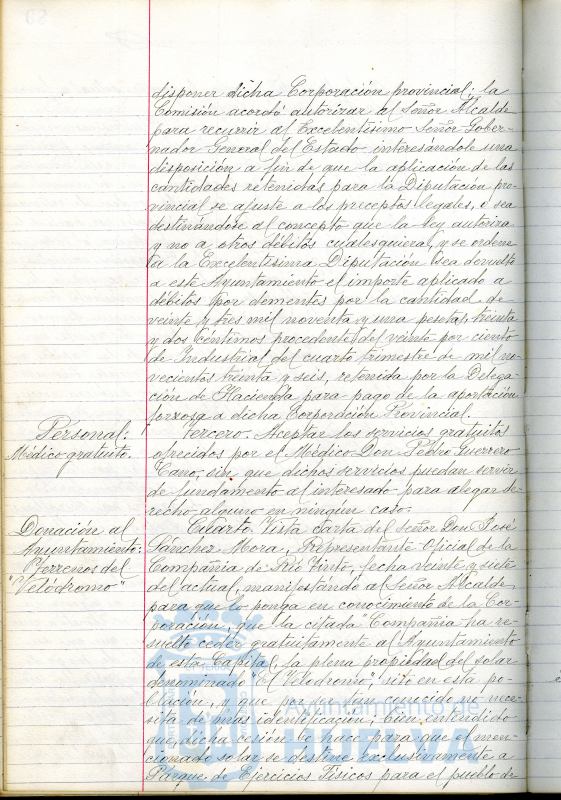 disponer dicha Corporación provincial; la
Comisión acordó autorizar al Señor Alcalde
para recurrir al Excelentísimo Señor Gober-
nador General del Estado interesándole una
disposición a fin de que la aplicación de las
cantidades retenidas para la Diputación pro-
vincial se ajuste a los preceptos legales, o sea
destinándose al concepto que la ley autoriza
y no a otros débitos cualesquiera, y se ordene
a la Excelentísima Diputación sea devuelto
a este Ayuntamiento el importe aplicado a
débitos por dementes por la cantidad de
veinte y tres mil noventa y una pesetas, treinta
y dos céntimos procedente del veinte por ciento
de Industrial del cuarto trimestre de mil no-
vecientos treinta y seis, retenida por la Delega-
ción de Hacienda para pago de la aportación
forzosa a dicha Corporación Provincial.
Personal.
Médico gratuito.
Tercero. Aceptar los servicios gratuitos
ofrecidos por el Médico Don Pedro Guerrero
Cano, sin que dichos servicios puedan servir
de fundamento al interesado para alegar de-
recho alguno en ningún caso.
Donación al
Ayuntamiento:
Terrenos del
"Velódromo"
Cuarto Vista carta del Señor Don José
Sánchez Mora, Representante Oficial de la
Compañía de Río Tinto, fecha veinte y siete
del actual, manifestando al Señor Alcalde
para que lo ponga en conocimiento de la Cor-
poración, que la citada Compañía ha re-
suelto ceder gratuitamente al Ayuntamiento
de esta Capital, la plena propiedad del solar
denominado "El Velódromo", sito en esta po-
blación, y que por ser tan conocido no nece-
sita de más identificación; bien entendido
que dicha cesión se hace para que el men-
cionado solar se destine exclusivamente a
Parque de Ejercicios Físicos para el pueblo de
Ayuntamiento de
HUELVA